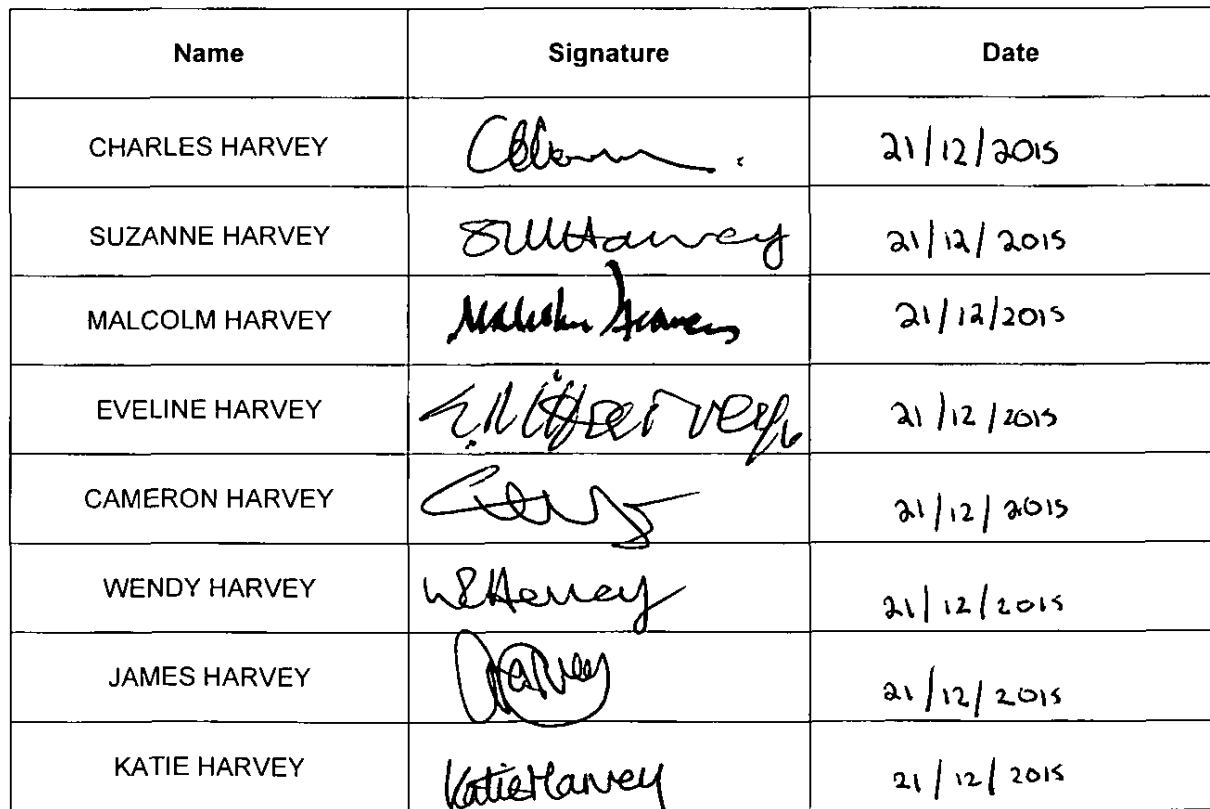 Name Signature Date
CHARLES HARVEY 21/12/2015
SUZANNE HARVEY SMHarvey 21/12/2015
MALCOLM HARVEY Malcolm Harvey 21/12/2015
EVELINE HARVEY 21/12/2015
CAMERON HARVEY 21/12/2015
WENDY HARVEY WEHarvey 21/12/2015
JAMES HARVEY JHarvey 21/12/2015
KATIE HARVEY Katie Harvey 21/12/2015